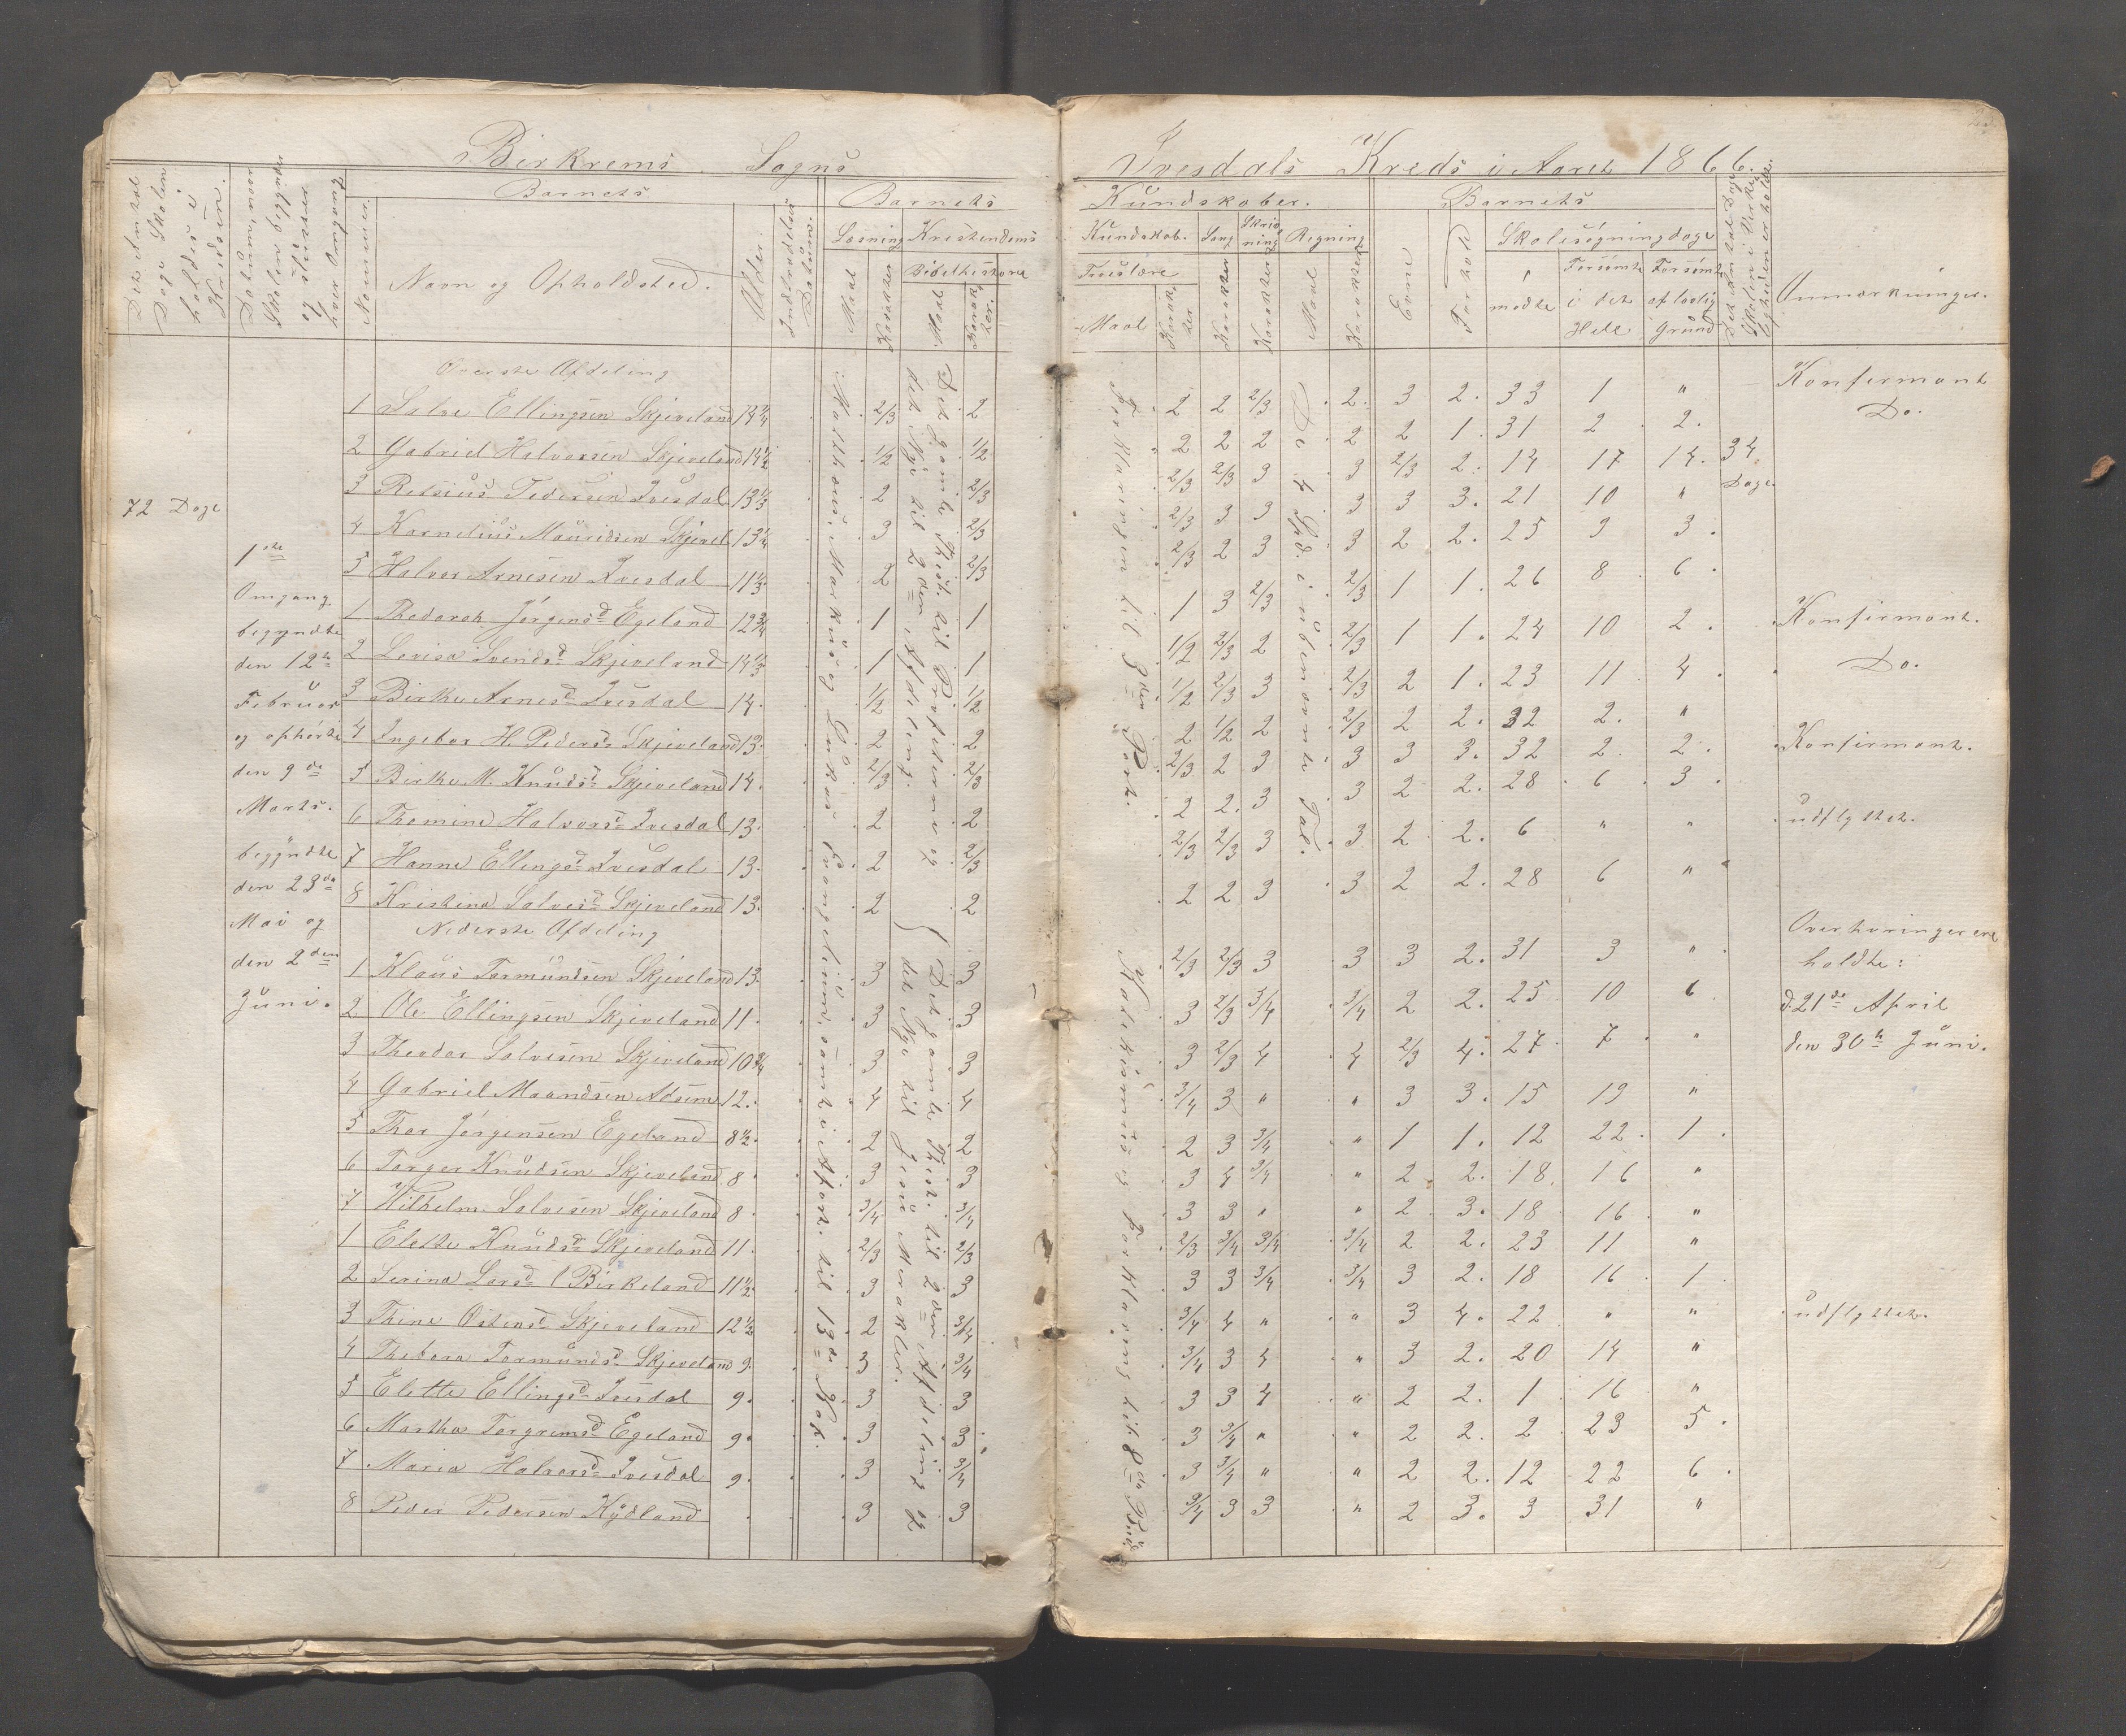 Birkrems Sogns
Ivesdals Kreds i Aaret 1866.
Det Antal Dage Skolen holdes i Kredsen.
Datum, naar Skolen begynder og sluttes hver Omgang
Barnets
Nummer.
Navn og Opholdsted.
Alder.
Indtrædelses Datum.
Barnets
Læsning
Maal
Karakter
Kristendoms
Bibelhistorie
Maal.
Karakter.
Kundskaber.
Kundskab.
Troeslære
Maal
Karakter
Sang
Karakter
Skrivning
Karakter
Regning
Maal
Karakter
Barnets
Evne
Forhold
Skolesøgningdage
mødte
Forsømte i det Hele
Forsømte af lovlig Grund
Det Antal Dage Skolen i Virkeligheden er holdt.
Anmærkninger.
72 Dage
1ste
Omgang
begyndte
den 12te
Februar
og ophørte
den 9de
Marts.
begyndte
den 23de
Mai og
den 2den
Juni.
Øverste Afdeling
1 Salve Ellingsen Skjeveland 14 1/4 2/3 2 2 2 2/3 2 3 2 33 1 " Konfirmant
2 Gabriel Halvorsen Skjeveland 14 1/2 1/2 1/2 2 2 2 2 2 1 31 2 2 Do.
3 Retsius Pedersen Ivesdal 13 1/3 2 2/3 2/3 2/3 3 3 2/3 2 14 17 14 34 Dage
4 Karnelius Mauridsen Skjevel 13 1/4 3 2/3 2/3 3 3 3 3 3 21 10 "
5 Halvor Arnesen Ivesdal 11 1/3 2 2/3 2/3 2 3 3 2 2 25 9 3
1 Thedorah Jörgensd Egeland 12 3/4 1 1 1 3 2/3 2/3 1 1 26 8 6
2 Lovisa Svendsd Skjeveland 14 1/3 1 1 1/2 2/3 2 2/3 1 1 24 10 2 Konfirmant.
3 Birthe Arnesd Ivesdal 14 1/2 1/2 1/2 2/3 3 2/3 2 1 23 11 4 Do.
4 Ingebor H. Pedersd Skjeveland 13 2 2 2 1/2 2 2/3 2 2 32 2 "
5 Birthe M. Knudsd Skjeveland 14 2/3 2/3 2/3 2 3 3 3 3 32 2 2 Konfirmant.
6 Thomine Halvorsd Ivesdal 13 2 2 2 2 3 3 2 2 28 6 3
7 Hanne Ellingsd Ivesdal 13 2 2/3 2/3 2/3 3 3 2 2 6 " " udflyttet.
8 Kristina Salvesd Skjeveland 13 2 2 2 2 3 3 2 2 28 6 "
Nederste Afdeling
1 Klaus Tormundsen Skjeveland 13 3 3 2/3 2/3 3 3 3 2 31 3 "
2 Ole Ellingsen Skjeveland 11 3 3 3 2/3 3/4 3/4 2 2 25 10 6
3 Theodor Salvesen Skjeveland 10 3/4 3 3 3 2/3 4 4 2/3 4 27 7 "
4 Gabriel Maandsen Adsem 12 4 4 3/4 3 " " 3 3 15 19 "
5 Thor Jörgensen Egeland 8 1/2 2 2 2 3 3/4 " 1 1 12 22 1
6 Torger Knudsen Skjeveland 8 3 3 3 4 3/4 " 2 2 18 16 "
7 Vilhelm Salvesen Skjeveland 8 3/4 3/4 3 3 " " 2 3 18 16 "
1 Elette Knudsd Skjeveland 11 2/3 2/3 2/3 3/4 3/4 3/4 2 2 23 11 "
2 Serina Larsd Birkeland 11 1/2 3 3 3 3 3/4 3/4 3 2 18 16 1
3 Thine Ostensd Skjeveland 12 1/2 2 3/4 3/4 4 " " 3 4 22 " " udflyttet.
4 Thebora Tormundsd Skjeveland 9 3 3/4 3/4 3 4 " 3 2 20 14 "
5 Elette Ellingsd Ivesdal 9 3 3 3 3 4 " 2 2 1 16 "
6 Martha Torgrimsd Egeland 9 3 3 3 3/4 " " 2 2 2 23 5
7 Maria Halvorsd Ivesdal 9 3 3/4 3 3/4 " " 2 2 12 22 6
8 Peder Pedersen Kydland 3 3 3/4 3 3 " 2 3 3 31 "
Matthæus, Markus og Lukas Evangelium, samt i Apost. til 13de Kap.
Det gamle Test. til Profeterne og
det Nye til 2den Afdeling.
Det gamle Test. til 2den Afdeling og
det Nye til Jesu Mirakler.
Forklaringen til 3die Part.
Katekismus og Forklaring til 8de Bud
De 4 Spd. i ubenævnte Tal.
Overhøringer ere
holdte:
d. 21de April
den 30te Juni.